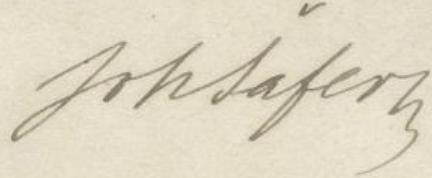 Joh Šafer